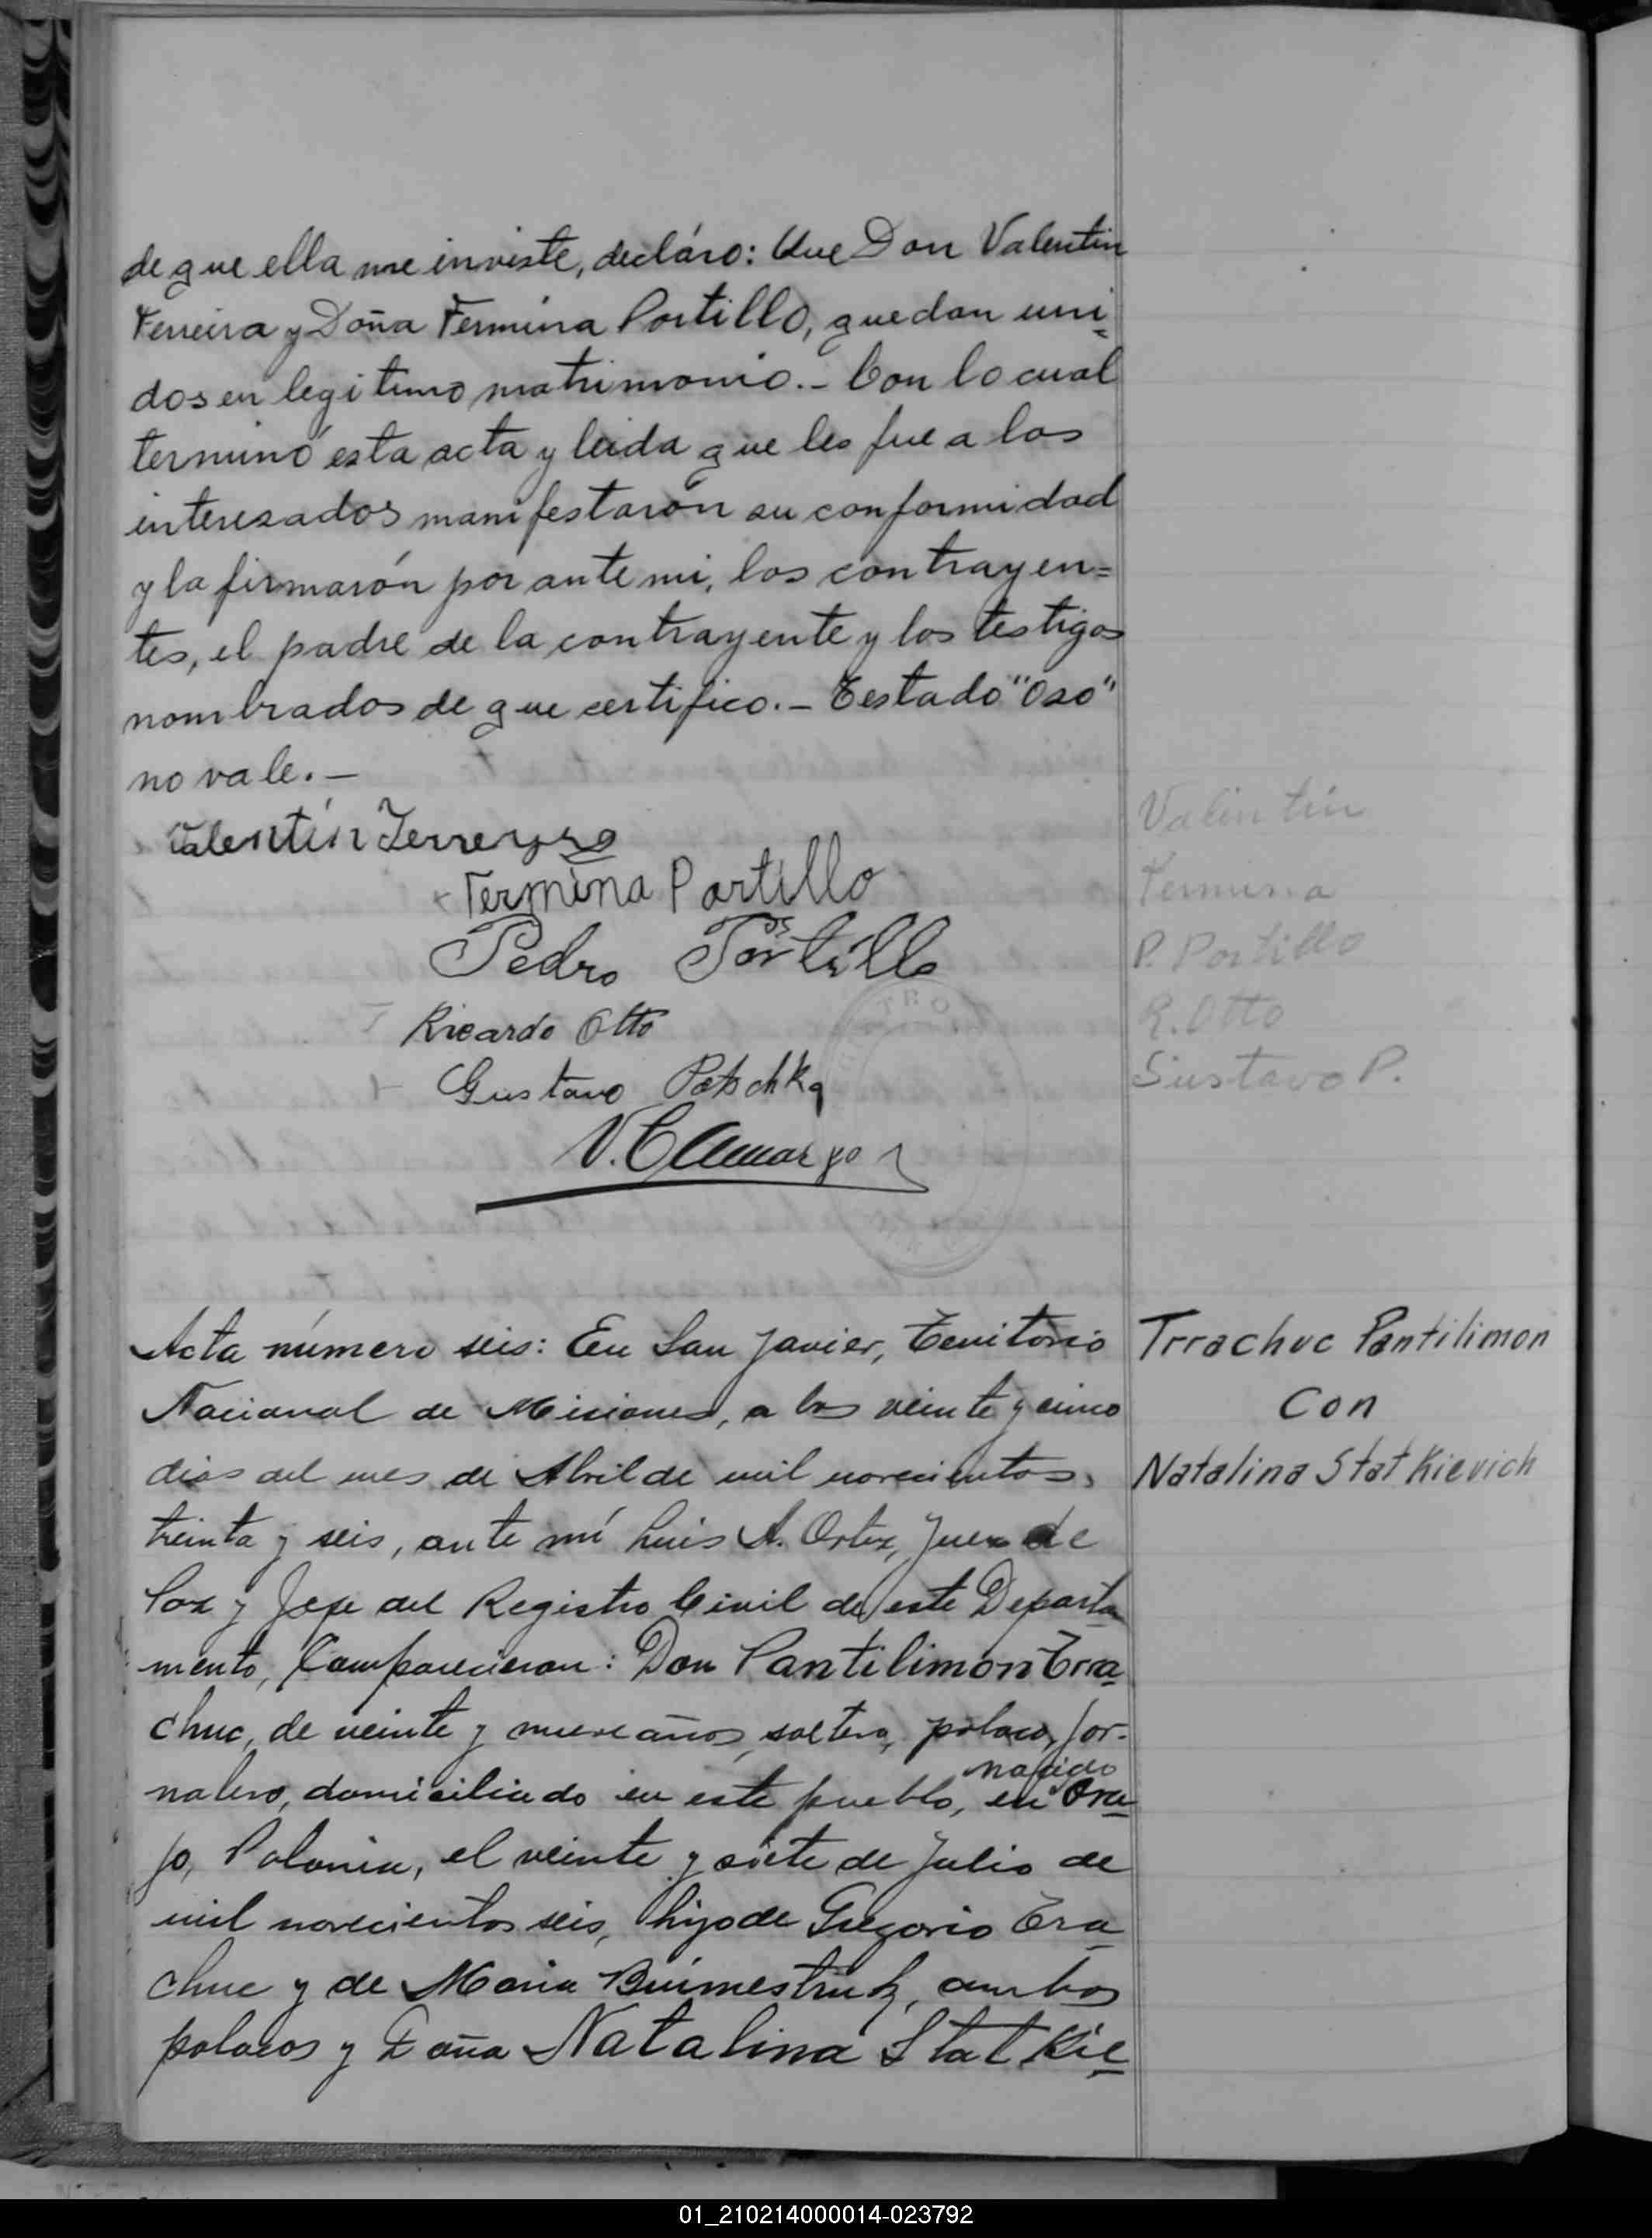 de que ella me inviste, decláro: Que Don Valentin
Ferreira y Doña Fermina Portillo, quedan uni-
dos en legitimo matrimonio.- Con lo cual
terminó esta acta y leida que les fue a los
interesados manifestarón su conformidad
y la firmarón por ante mi, los contrayen=
tes, el padre de la contrayente y los testigos
nombrados de que certifico.- Testado "Oso"
no vale.-
Valentín Ferreyra
Valentin
Fermina Portillo
Fermina
Pedro Portillo
P. Portillo
Ricardo Otto
R. Otto
Gustavo
Gustavo P.
V. Camargo
Acta número seis: En San Javier, Territorio
Nacional de Misiones, a los veinte y cinco
dias del mes de Abril de mil novecientos
treinta y seis, ante mí Luis A. Ortiz, Juez de
Paz y Jefe del Registro Civil de este Departa
mento, Comparecieron: Don Pantilimon Trra-
chuc, de veinte y nueve años, soltero, polaco, jor-
nalero, domiciliado en este pueblo, nacido en
jo, Polonia, el veinte y siete de Julio de
mil novecientos seis, hijo de Gregorio Tra-
chuc y de Maria ambos
polacos y Doña Natalina Stat Kie-
Trrachuc Pantilimon
Con
Natalina Stat Kievich
01_210214000014-023792